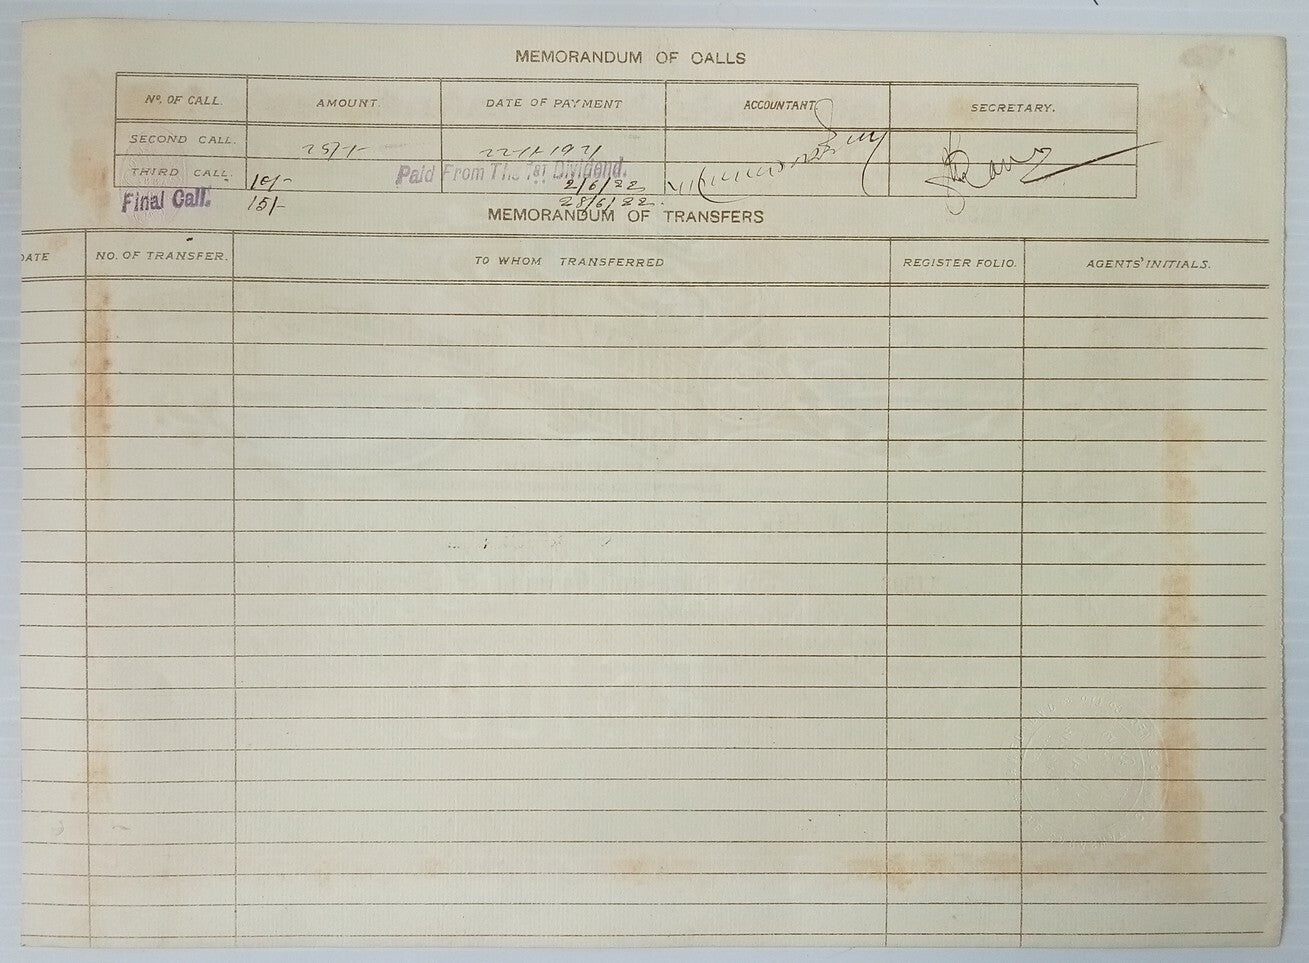 MEMORANDUM OF CALLS
Nº. OF CALL. AMOUNT. DATE OF PAYMENT ACCOUNTANT. SECRETARY.
SECOND CALL. 25/-
THIRD CALL. 10/- Paid From The 1st Dividend. 2/6/22
Final Call. 15/- 28/6/22.
MEMORANDUM OF TRANSFERS
DATE NO. OF TRANSFER. TO WHOM TRANSFERRED REGISTER FOLIO. AGENTS' INITIALS.